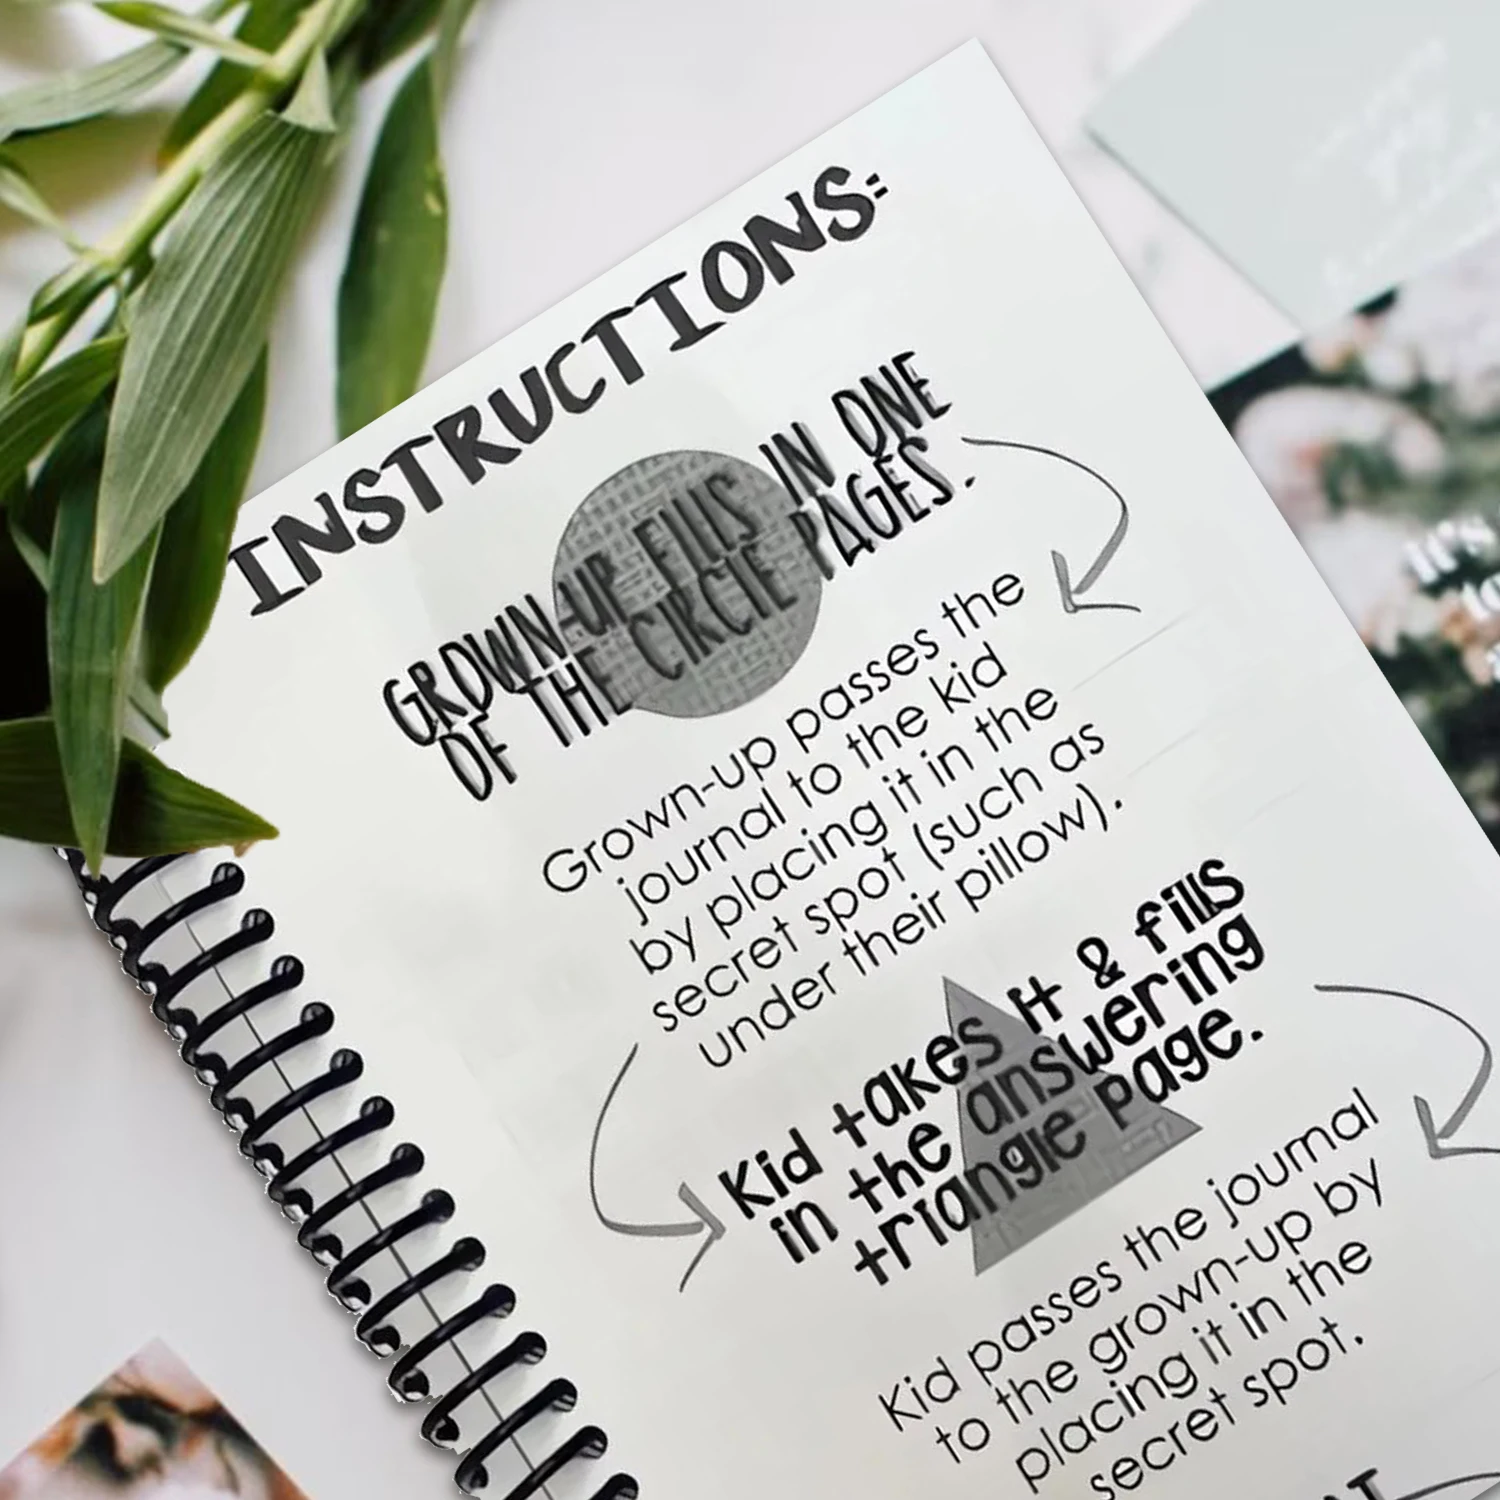 INSTRUCTIONS:
GROWN-UP FILLS IN ONE
OF THE CIRCLE PAGES.
Grown-up passes the
journal to the kid
by placing it in the
secret spot (such as
under their pillow).
Kid takes it & fills
in the answering
triangle page.
Kid passes the journal
to the grown-up by
placing it in the
secret spot.
it's